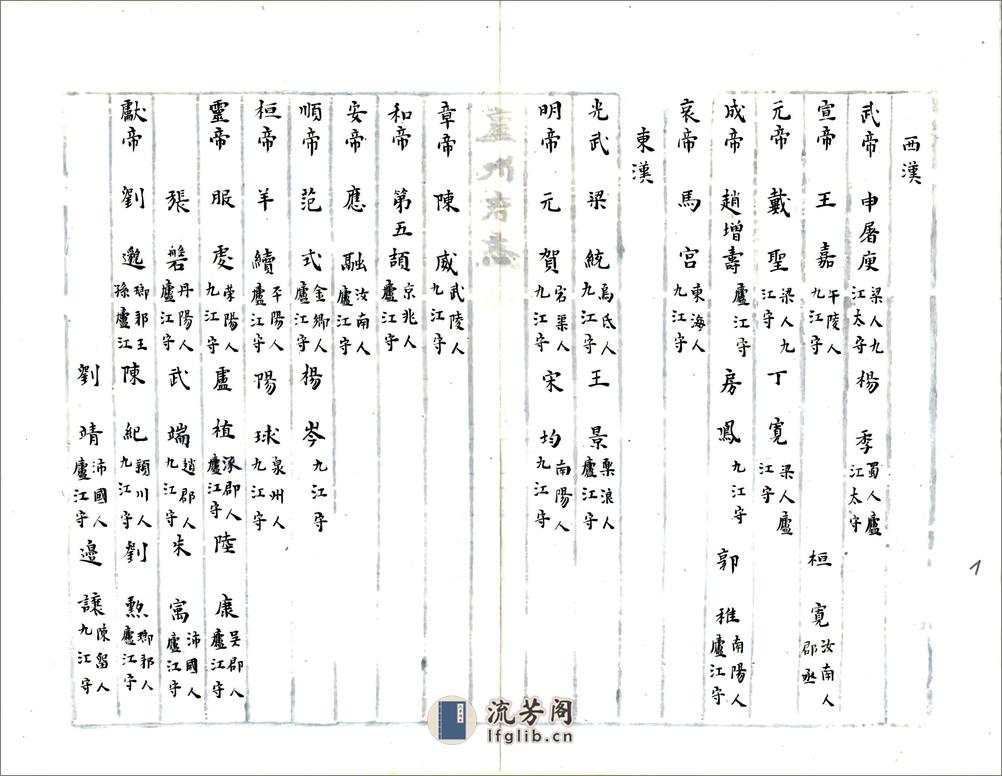 西漢
武帝 申屠庾 梁人九江太守 楊季 蜀人廬江太守
宣帝 王嘉 平陵人九江守 桓寬 汝南人郡丞
元帝 戴聖 梁人九江守 丁寬 梁人廬江守
成帝 趙增壽 廬江守 房鳳 九江守 郭稚 南陽人廬江守
哀帝 馬宮 東海人九江守
東漢
光武 梁統 烏氏人九江守 王景 樂浪人廬江守
明帝 元賀 宕渠人九江守 宋均 南陽人九江守
廬州府志
章帝 陳威 武陵人九江守
和帝 第五頡 京兆人廬江守
安帝 應融 汝南人廬江守
順帝 范式 金鄉人廬江守 楊岑 九江守
桓帝 羊續 平陽人廬江守 陽球 泉州人九江守
靈帝 服虔 滎陽人九江守 盧植 涿郡人廬江守 陸康 吳郡人廬江守
張磐 丹陽人廬江守 武端 趙郡人九江守 朱寓 沛國人廬江守
獻帝 劉邈 瑯邪王孫廬江 陳紀 潁川人九江守 劉勲 瑯邪人廬江守
劉靖 沛國人廬江守 邊讓 陳留人九江守
1
流芳阁
lfglib.cn